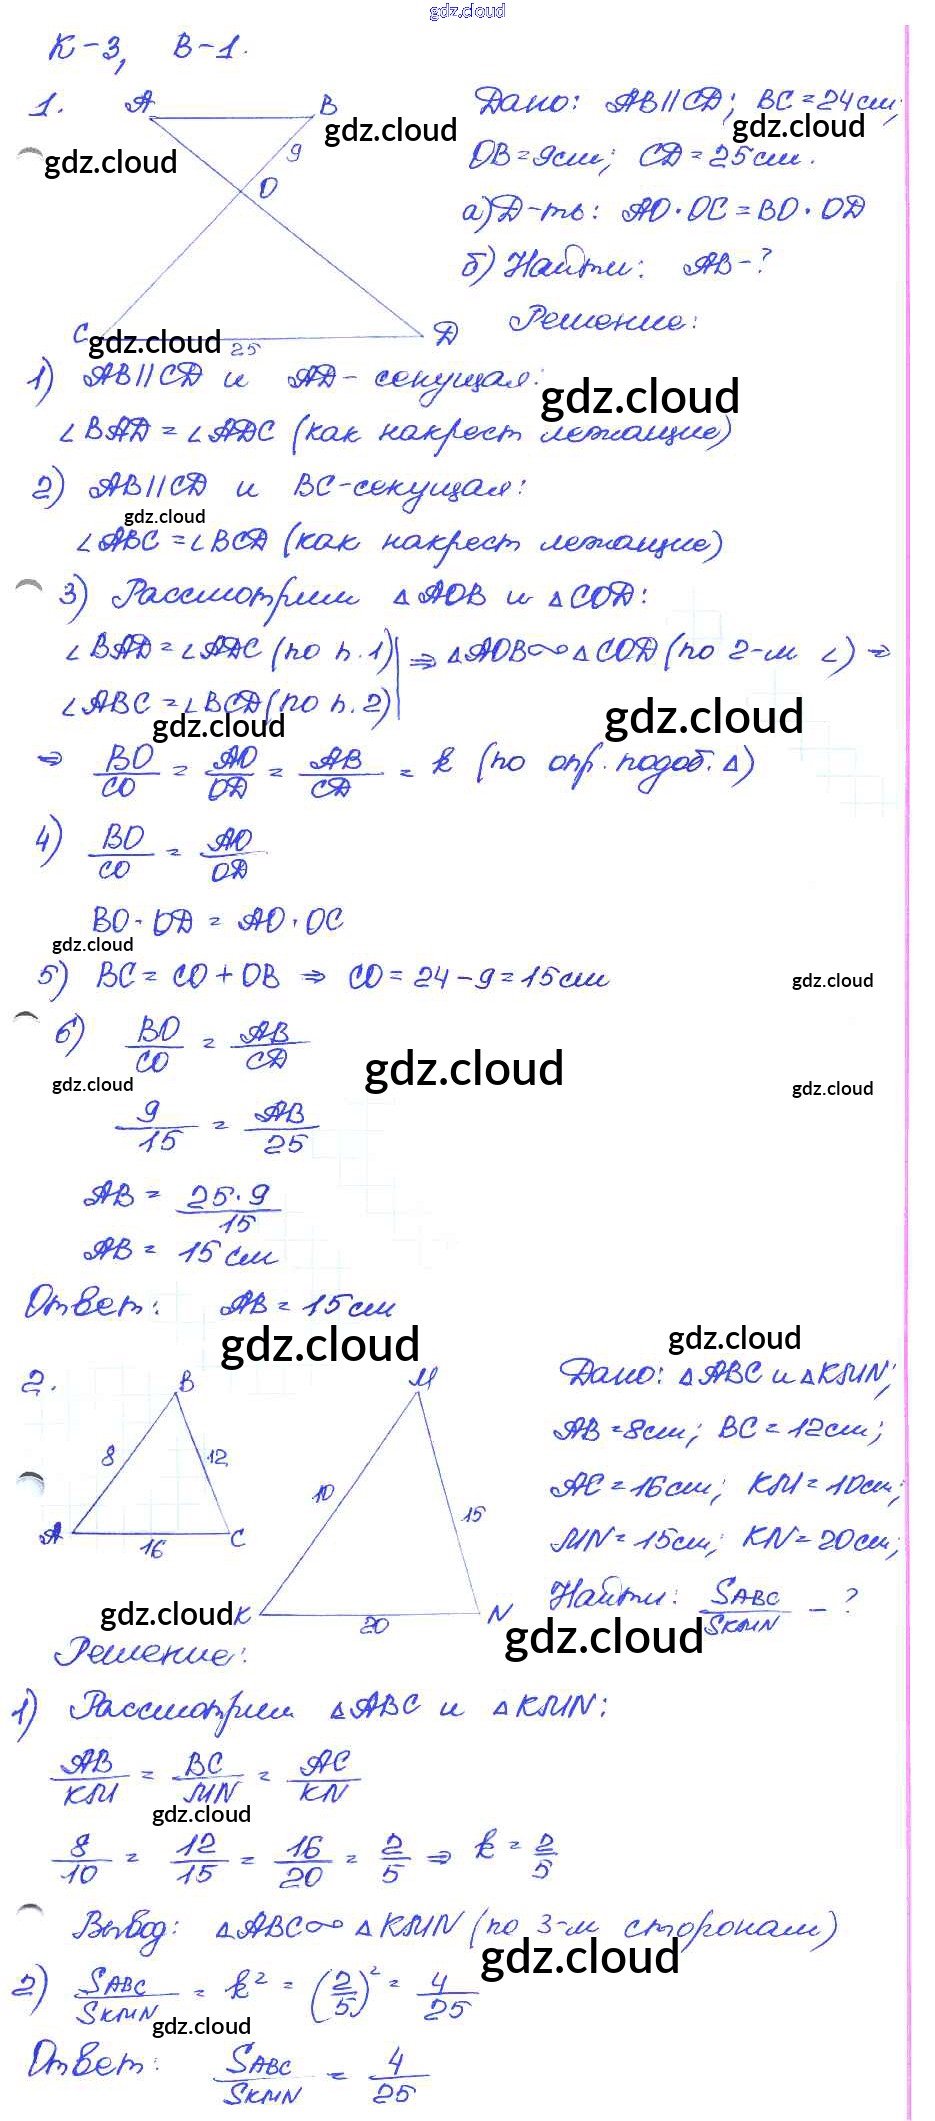 gdz.cloud
К-3, В-1.
1. A B
9
O
C D
25
Дано: AB||CD; BC=24см;
OB=9см; CD=25см.
а) Д-ть: AO·OC=BO·OD
б) Найти: AB-?
Решение:
gdz.cloud
gdz.cloud
gdz.cloud
gdz.cloud
1) AB||CD и AD- секущая:
gdz.cloud
∠BAD=∠ADC (как накрест лежащие)
2) AB||CD и BC-секущая:
gdz.cloud
∠ABC=∠BCD (как накрест лежащие)
3) Рассмотрим △AOB и △COD:
∠BAD=∠ADC (по п.1) | ⇒ △AOB∞△COD (по 2-м ∠) ⇒
∠ABC=∠BCD (по п.2) |
gdz.cloud
gdz.cloud
⇒ BO/CO = AO/OD = AB/CD = k (по опр. подоб. △)
4) BO/CO = AO/OD
BO·OD = AO·OC
gdz.cloud
5) BC = CO+OB ⇒ CO=24-9=15см
gdz.cloud
6) BO/CO = AB/CD
gdz.cloud
gdz.cloud
gdz.cloud
9/15 = AB/25
AB = 25·9/15
AB = 15см
Ответ: AB=15см
gdz.cloud
gdz.cloud
2. B M
8 12
A 16 C
10 15
K 20 N
Дано: △ABC и △KMN;
AB=8см; BC=12см;
AC=16см; KM=10см;
MN=15см; KN=20см;
Найти: SABC/SKMN - ?
gdz.cloud
gdz.cloud
Решение:
1) Рассмотрим △ABC и △KMN:
AB/KM = BC/MN = AC/KN
gdz.cloud
8/10 = 12/15 = 16/20 = 2/5 ⇒ k = 2/5
Вывод: △ABC∞△KMN (по 3-м сторонам)
gdz.cloud
2) SABC/SKMN = k² = (2/5)² = 4/25
gdz.cloud
Ответ: SABC/SKMN = 4/25